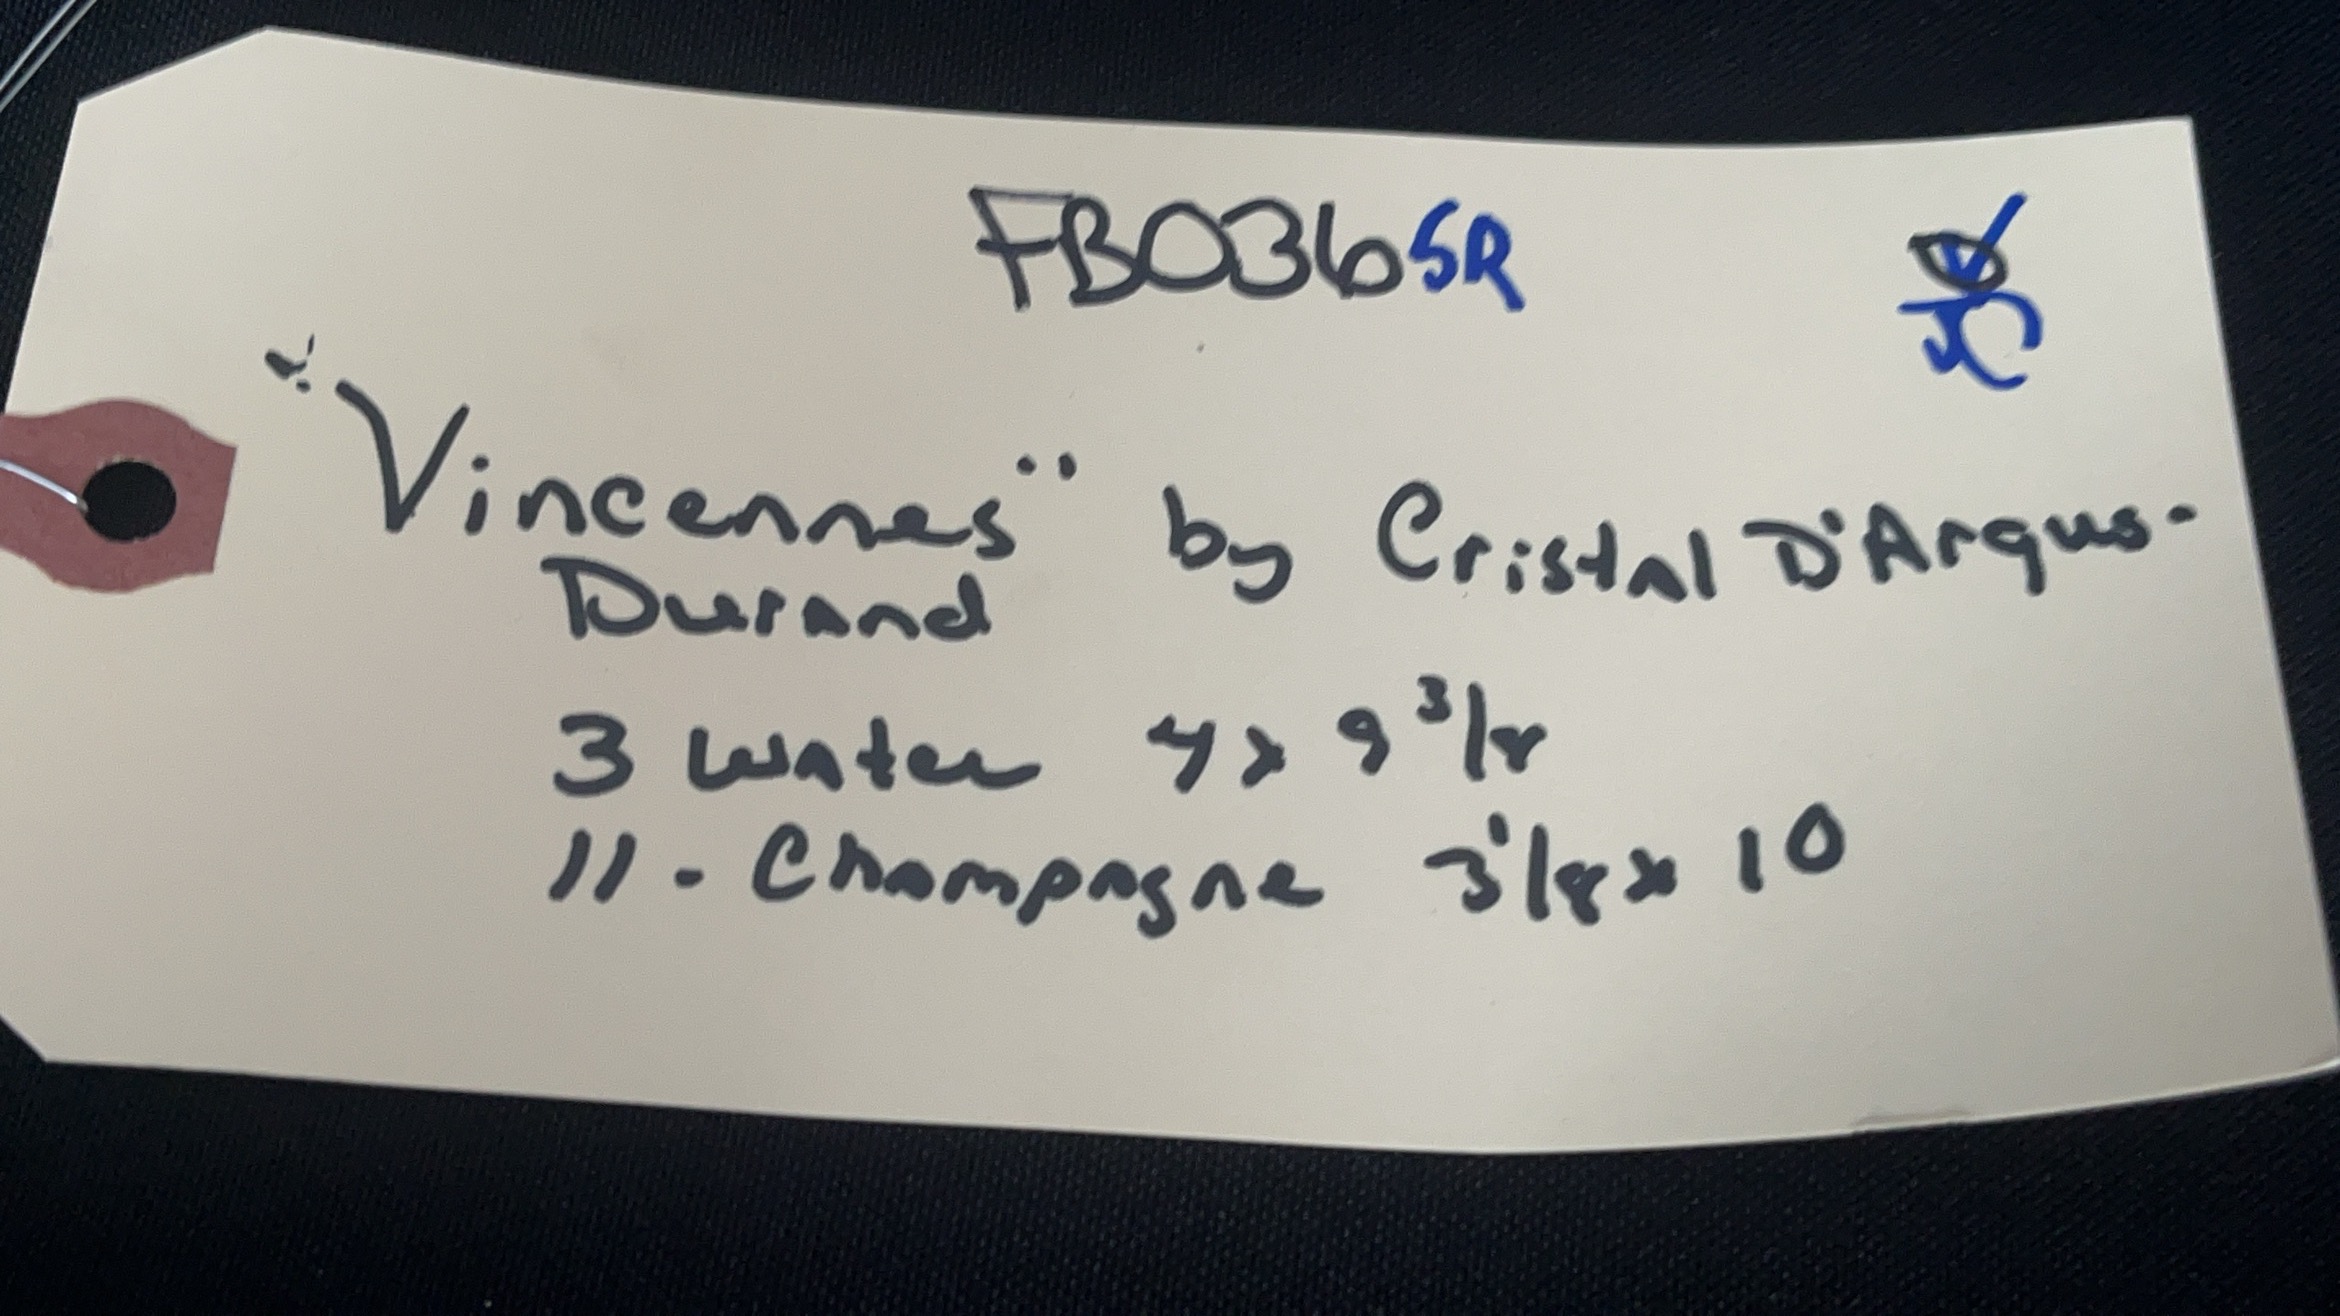 FB036SR
JC
"Vincennes" by Cristal D'Arqus-
Durand
3 water 4 x 9 3/8
11 - Champagne 3 1/8 x 10